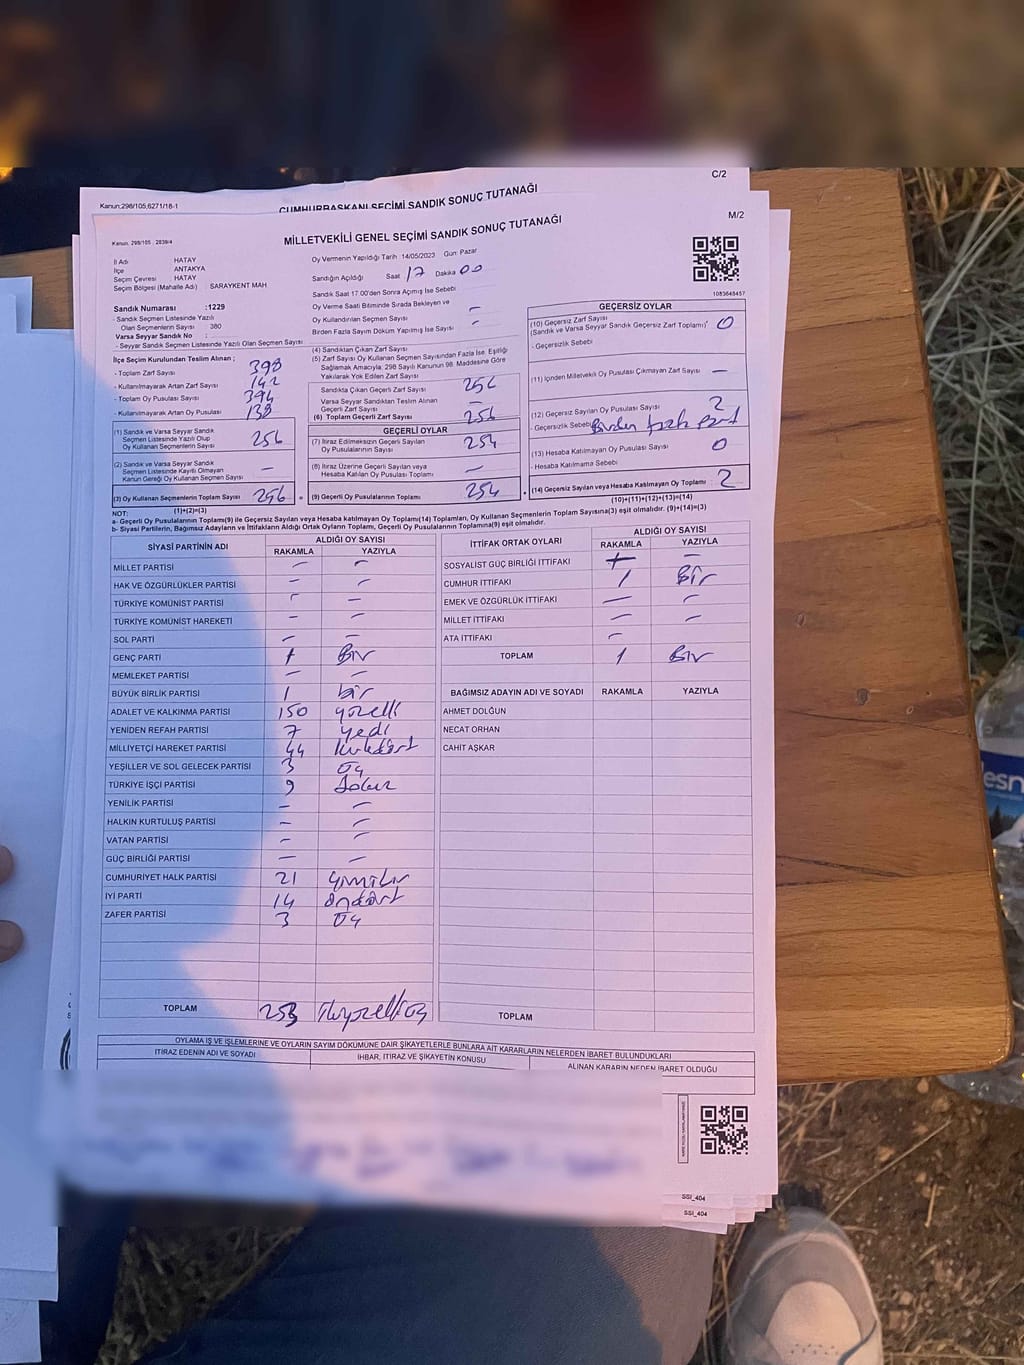 C/2
Kanun;298/105,6271/18-1
CUMHURBAŞKANI SEÇİMİ SANDIK SONUÇ TUTANAĞI
M/2
Kanun, 298/105 , 2839/4
MİLLETVEKİLİ GENEL SEÇİMİ SANDIK SONUÇ TUTANAĞI
1083648457
İl Adı HATAY
İlçe ANTAKYA
Seçim Çevresi : HATAY
Seçim Bölgesi (Mahalle Adı) SARAYKENT MAH.
Oy Vermenin Yapıldığı Tarih :14/05/2023 Gün: Pazar
Sandığın Açıldığı Saat 17 Dakika 00
Sandık Saat 17:00'den Sonra Açılmış İse Sebebi
Oy Verme Saati Bitiminde Sırada Bekleyen ve
Oy Kullandırılan Seçmen Sayısı –
Birden Fazla Sayım Döküm Yapılmış İse Sayısı –
Sandık Numarası :1229
- Sandık Seçmen Listesinde Yazılı
Olan Seçmenlerin Sayısı : 380
Varsa Seyyar Sandık No :
- Seyyar Sandık Seçmen Listesinde Yazılı Olan Seçmen Sayısı
İlçe Seçim Kurulundan Teslim Alınan ;
- Toplam Zarf Sayısı 398
- Kullanılmayarak Artan Zarf Sayısı 142
- Toplam Oy Pusulası Sayısı 394
- Kullanılmayarak Artan Oy Pusulası 138
(1) Sandık ve Varsa Seyyar Sandık
Seçmen Listesinde Yazılı Olup
Oy Kullanan Seçmenlerin Sayısı 256
(2) Sandık ve Varsa Seyyar Sandık
Seçmen Listesinde Kayıtlı Olmayan
Kanun Gereği Oy Kullanan Seçmen Sayısı –
(3) Oy Kullanan Seçmenlerin Toplam Sayısı 256
(4) Sandıktan Çıkan Zarf Sayısı
(5) Zarf Sayısı Oy Kullanan Seçmen Sayısından Fazla İse, Eşitliği
Sağlamak Amacıyla; 298 Sayılı Kanunun 98. Maddesine Göre
Yakılarak Yok Edilen Zarf Sayısı
Sandıkta Çıkan Geçerli Zarf Sayısı 256
Varsa Seyyar Sandıktan Teslim Alınan
Geçerli Zarf Sayısı –
(6) Toplam Geçerli Zarf Sayısı 256
GEÇERLİ OYLAR
(7) İtiraz Edilmeksizin Geçerli Sayılan
Oy Pusulasının Sayısı 254
(8) İtiraz Üzerine Geçerli Sayılan veya
Hesaba Katılan Oy Pusulası Toplamı –
(9) Geçerli Oy Pusulalarının Toplamı 254
GEÇERSİZ OYLAR
(10) Geçersiz Zarf Sayısı
(Sandık ve Varsa Seyyar Sandık Geçersiz Zarf Toplamı) 0
- Geçersizlik Sebebi
(11) İçinden Milletvekili Oy Pusulası Çıkmayan Zarf Sayısı –
(12) Geçersiz Sayılan Oy Pusulası Sayısı 2
- Geçersizlik Sebebi Birden fazla
(13) Hesaba Katılmayan Oy Pusulası Sayısı 0
- Hesaba Katılmama Sebebi
(14) Geçersiz Sayılan veya Hesaba Katılmayan Oy Toplamı : 2
(10)+(11)+(12)+(13)=(14)
NOT: (1)+(2)=(3)
a- Geçerli Oy Pusulalarının Toplamı(9) ile Geçersiz Sayılan veya Hesaba katılmayan Oy Toplamı(14) Toplamları, Oy Kullanan Seçmenlerin Toplam Sayısına(3) eşit olmalıdır. (9)+(14)=(3)
b- Siyasi Partilerin, Bağımsız Adayların ve İttifakların Aldığı Ortak Oyların Toplamı, Geçerli Oy Pusulalarının Toplamına(9) eşit olmalıdır.
SİYASİ PARTİNİN ADI ALDIĞI OY SAYISI
RAKAMLA YAZIYLA
MİLLET PARTİSİ – –
HAK VE ÖZGÜRLÜKLER PARTİSİ – –
TÜRKİYE KOMÜNİST PARTİSİ – –
TÜRKİYE KOMÜNİST HAREKETİ – –
SOL PARTİ – –
GENÇ PARTİ 1 Bir
MEMLEKET PARTİSİ – –
BÜYÜK BİRLİK PARTİSİ 1 bir
ADALET VE KALKINMA PARTİSİ 150 yüzelli
YENİDEN REFAH PARTİSİ 7 yedi
MİLLİYETÇİ HAREKET PARTİSİ 44 kırkdört
YEŞİLLER VE SOL GELECEK PARTİSİ 3 Üç
TÜRKİYE İŞÇİ PARTİSİ 9 dokuz
YENİLİK PARTİSİ – –
HALKIN KURTULUŞ PARTİSİ – –
VATAN PARTİSİ – –
GÜÇ BİRLİĞİ PARTİSİ – –
CUMHURİYET HALK PARTİSİ 21 yirmibir
İYİ PARTİ 14 öndört
ZAFER PARTİSİ 3 Üç
TOPLAM 253 İkiyüzelliüç
İTTİFAK ORTAK OYLARI ALDIĞI OY SAYISI
RAKAMLA YAZIYLA
SOSYALİST GÜÇ BİRLİĞİ İTTİFAKI –
CUMHUR İTTİFAKI 1 Bir
EMEK VE ÖZGÜRLÜK İTTİFAKI – –
MİLLET İTTİFAKI – –
ATA İTTİFAKI –
TOPLAM 1 Bir
BAĞIMSIZ ADAYIN ADI VE SOYADI RAKAMLA YAZIYLA
AHMET DOLĞUN
NECAT ORHAN
CAHİT AŞKAR
TOPLAM
OYLAMA İŞ VE İŞLEMLERİNE VE OYLARIN SAYIM DÖKÜMÜNE DAİR ŞİKAYETLERLE BUNLARA AİT KARARLARIN NELERDEN İBARET BULUNDUKLARI
İTİRAZ EDENİN ADI VE SOYADI İHBAR, İTİRAZ VE ŞİKAYETİN KONUSU ALINAN KARARIN NEDEN İBARET OLDUĞU
SSI_404
SSI_404
esn